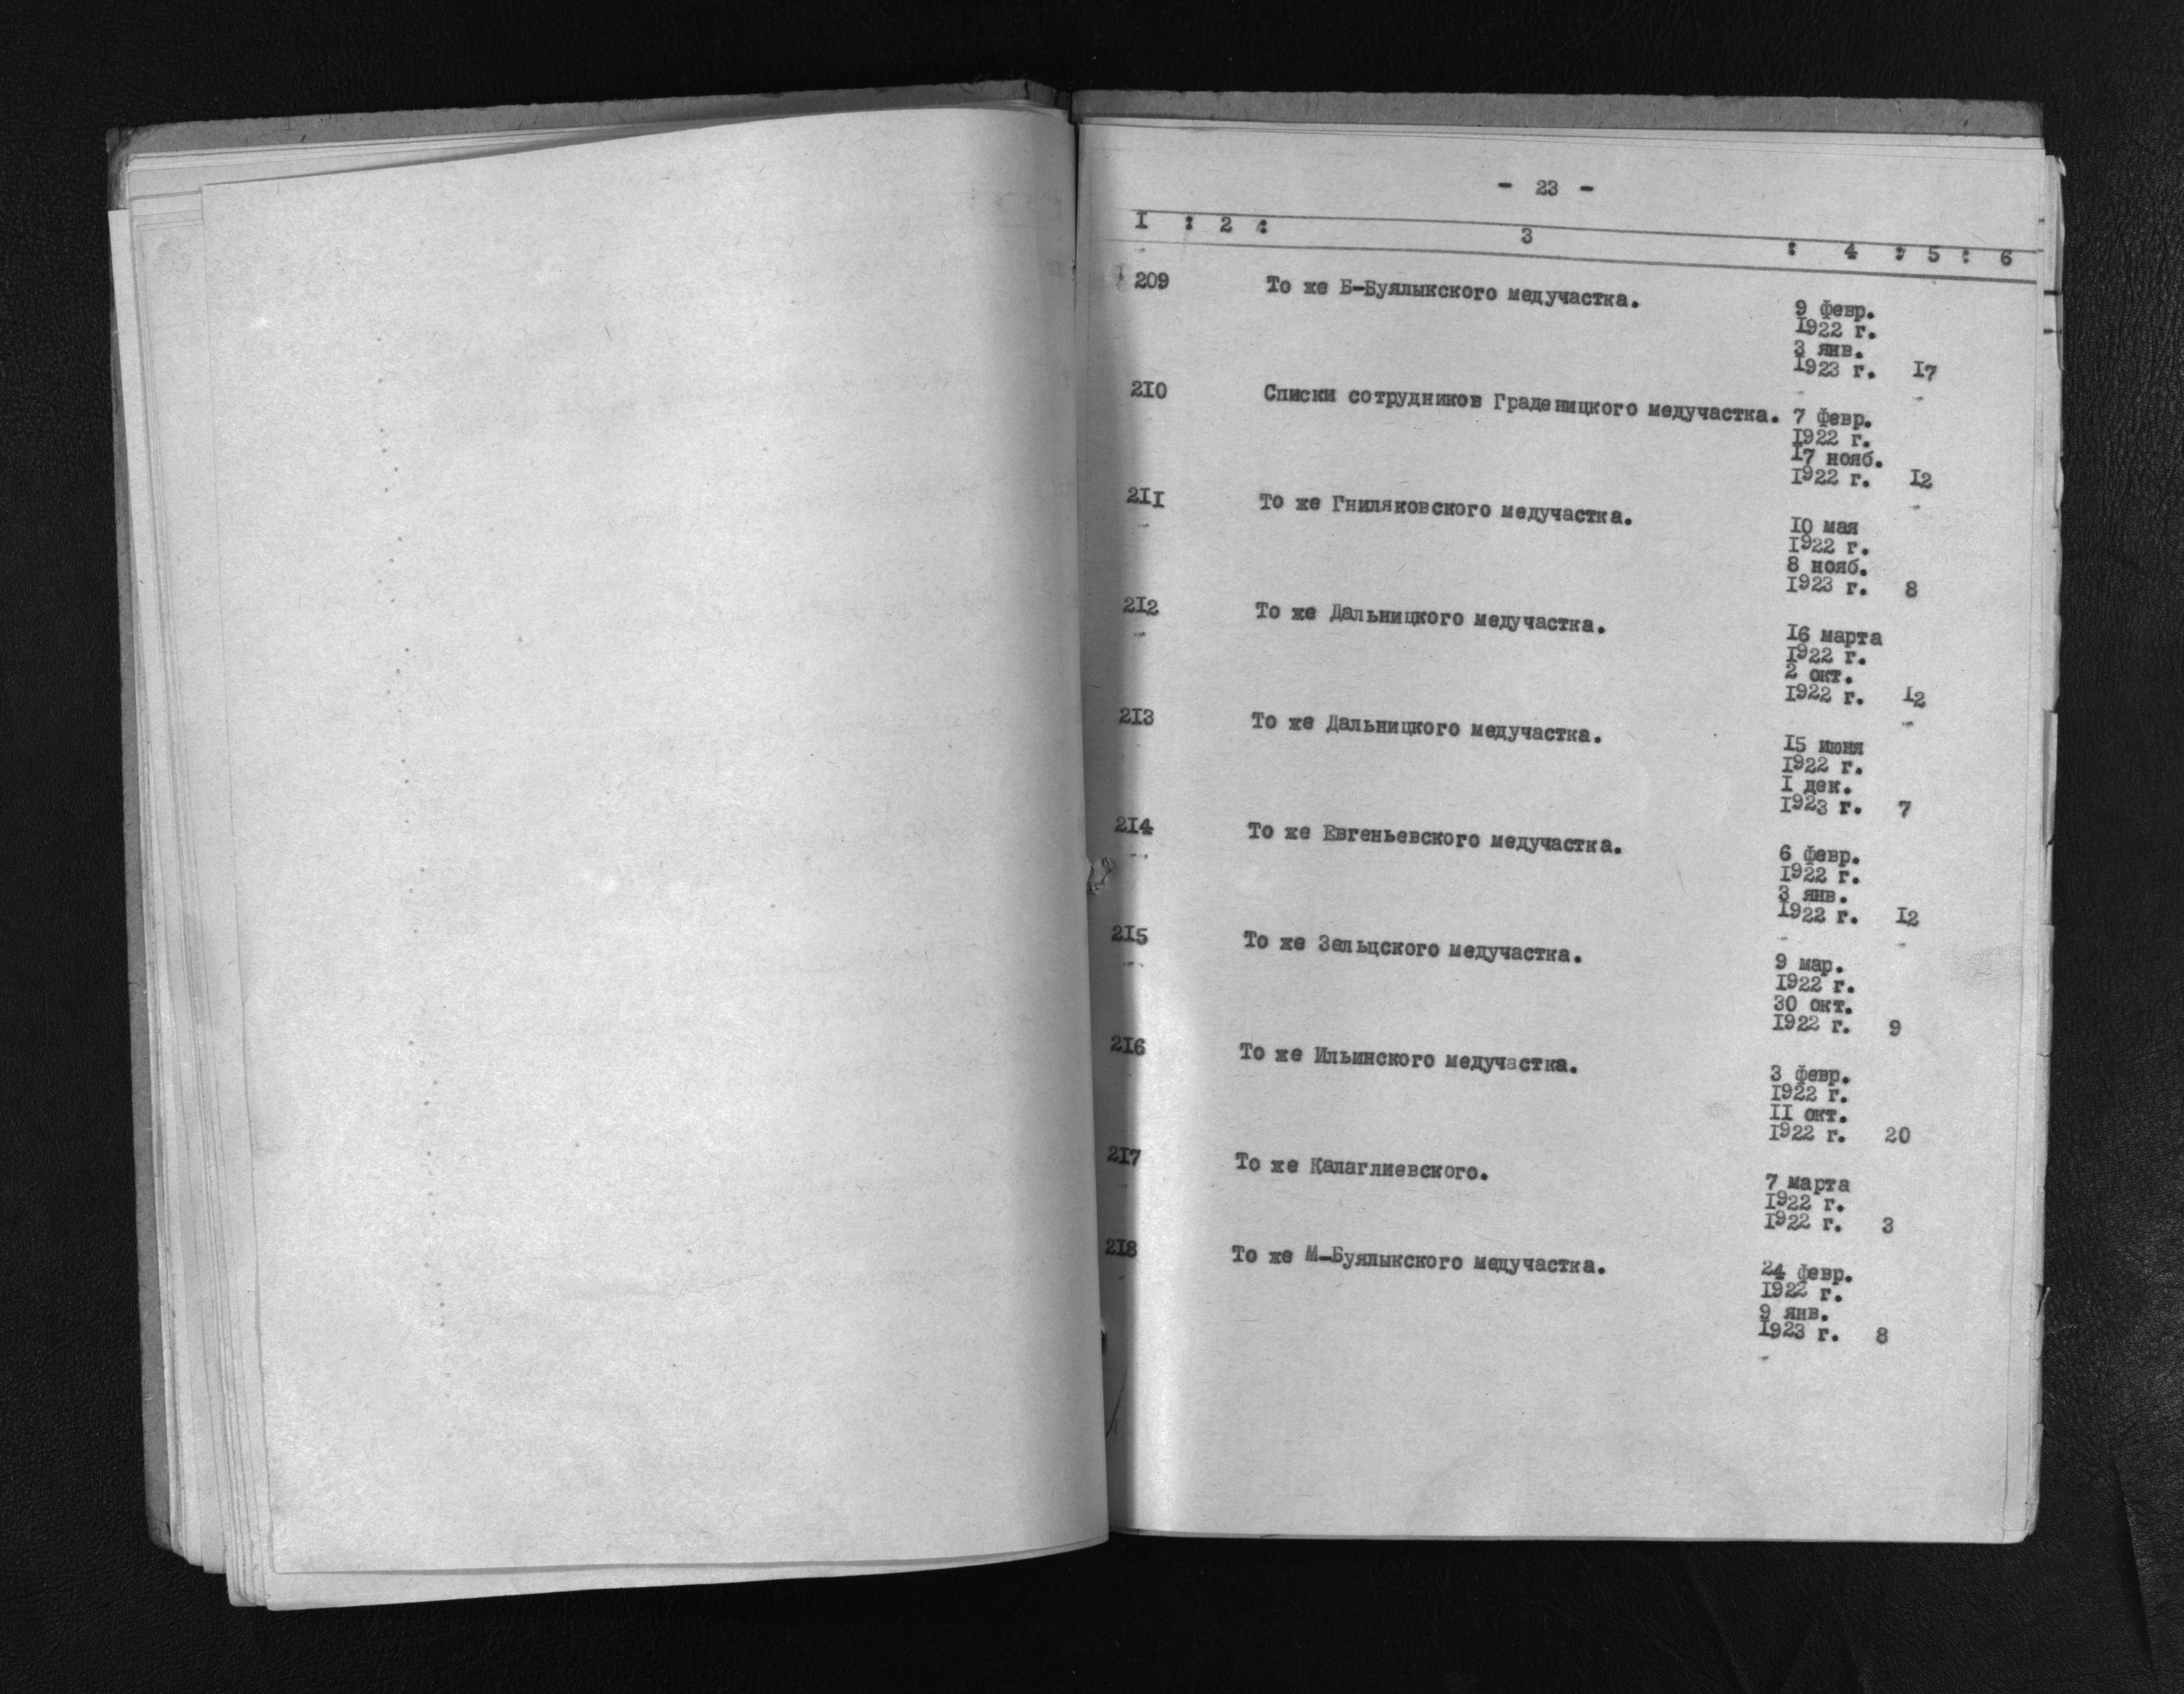 - 23 -
I : 2 : 3 : 4 : 5 : 6
209 То же Б-Буялыкского медучастка. 9 февр.
1922 г.
3 янв.
1923 г. 17
210 Списки сотрудников Граденицкого медучастка. 7 февр.
1922 г.
17 нояб.
1922 г. 12
211 То же Гниляковского медучастка. 10 мая
1922 г.
8 нояб.
1923 г. 8
212 То же Дальницкого медучастка. 16 марта
1922 г.
2 окт.
1922 г. 12
213 То же Дальницкого медучастка. 15 июня
1922 г.
I дек.
1923 г. 7
214 То же Евгеньевского медучастка. 6 февр.
1922 г.
3 янв.
1922 г. 12
215 То же Зельцского медучастка. 9 мар.
1922 г.
30 окт.
1922 г. 9
216 То же Ильинского медучастка. 3 февр.
1922 г.
II окт.
1922 г. 20
217 То же Калаглиевского. 7 марта
1922 г.
1922 г. 3
218 То же М-Буялыкского медучастка. 24 февр.
1922 г.
9 янв.
1923 г. 8